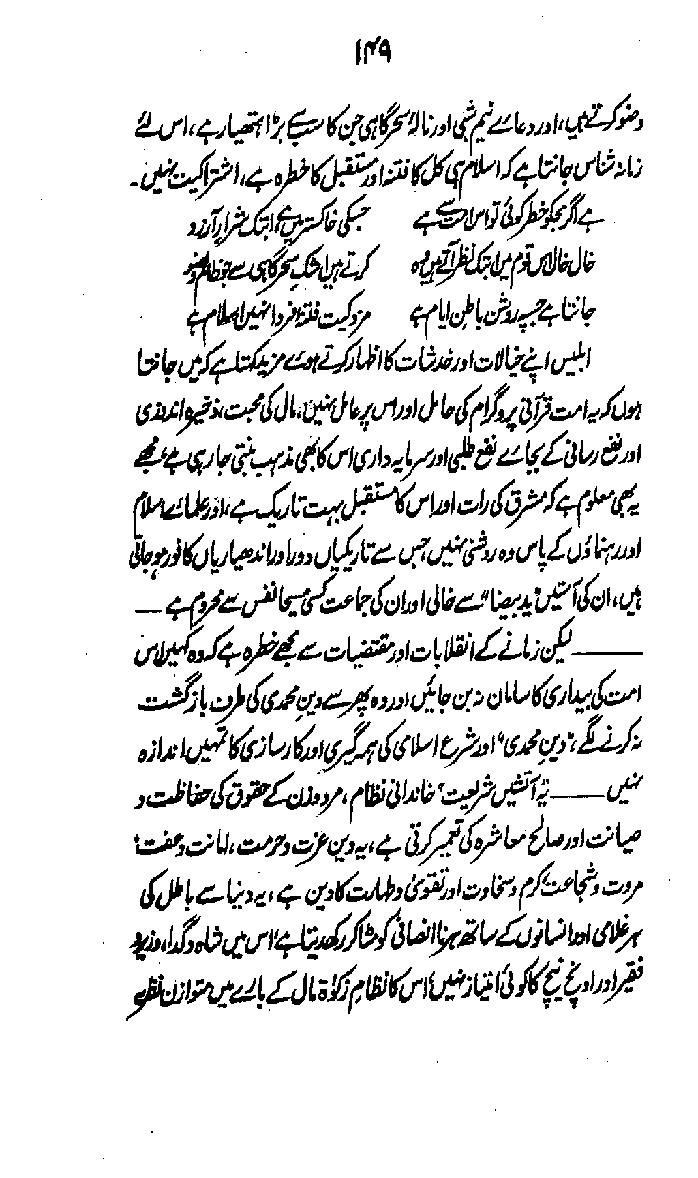 ۱۴۹
وضو کرتے ہیں، اور دعائے نیم شبی اور نالۂ سحر گاہی جن کا سب سے بڑا ہتھیار ہے، اس لئے
زمانہ شناس جانتا ہے کہ اسلام ہی کل کا فتنہ اور مستقبل کا خطرہ ہے، اشتراکیت نہیں۔
ہے اگر مجھکو خطر کوئی تو اس امت سے ہے جسکی خاکستر میں ہے ابتک شرار آرزو
خال خال اس قوم میں ابتک نظر آتے ہیں وہ کرتے ہیں اشک سحر گاہی سے جو ظالم وضو
جانتا ہے جس پہ روشن باطن ایام ہے مزدکیت فتنۂ فردا نہیں اسلام ہے
ابلیس اپنے خیالات اور خدشات کا اظہار کرتے ہوئے مزید کہتا ہے کہ میں جانتا
ہوں کہ یہ امت قرآنی پروگرام کی حامل اور اس پر عامل نہیں، مال کی محبت، ذخیرہ اندوزی
اور نفع رسانی کے بجائے نفع طلبی اور سرمایہ داری اس کا بھی مذہب بنتی جا رہی ہے، مجھے
یہ بھی معلوم ہے کہ مشرق کی رات اور اس کا مستقبل بہت تاریک ہے، اور علمائے اسلام
اور رہنماؤں کے پاس وہ روشنی نہیں، جس سے تاریکیاں دور اور اندھیاریاں کافور ہو جاتی
ہیں، ان کی آستیں "ید بیضا" سے خالی اور ان کی جماعت کسی مسیحا نفس سے محروم ہے ــــ
ــــــــ لیکن زمانے کے انقلابات اور مقتضیات سے مجھے خطرہ ہے کہ وہ کہیں اس
امت کی بیداری کا سامان نہ بن جائیں اور وہ پھر سے دین محمدی کی طرف بازگشت
نہ کرنے لگے، "دین محمدی" اور شرع اسلامی کی ہمہ گیری اور کارسازی کا تمہیں اندازہ
نہیں ــــــــ یہ آتشیں شریعت، خاندانی نظام، مرد و زن کے حقوق کی حفاظت و
صیانت اور صالح معاشرہ کی تعمیر کرتی ہے، یہ دین عزت و حرمت، امانت و عفت،
مروت و شجاعت، کرم و سخاوت اور تقویٰ و طہارت کا دین ہے، یہ دنیا سے باطل کی
ہر غلامی اور انسانوں کے ساتھ ہر نا انصافی کو مٹا کر رکھدیتا ہے، اس میں شاہ و گدا، وزیر و
فقیر اور اونچ نیچ کا کوئی امتیاز نہیں، اس کا نظام زکوٰۃ مال کے بارے میں متوازن نظریہ